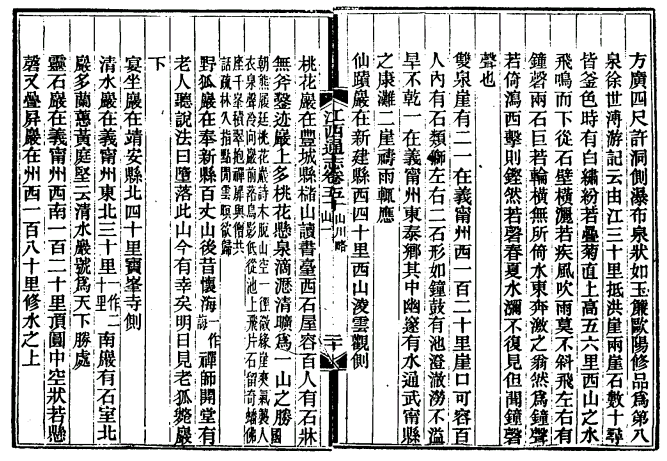 方廣四尺許洞側瀑布泉狀如玉簾歐陽修品爲第八
泉徐世溥游記云由江三十里抵洪崖兩崖石數十尋
皆釜色時有白繡粉若疊菊直上高五六里西山之水
飛鳴而下從石壁橫灑若疾風吹雨莫不斜飛左右有
鐘磬兩石巨若輪橫無所倚水東奔激之翁然爲鐘聲
若倚瀉西擊則鏗然若磬春夏水濔不復見但聞鐘磬
聲也
雙泉崖有二一在義甯州西一百二十里崖口可容百
人內有石類獅左右二石形如鐘鼓有池澄澈澇不溢
旱不乾一在義甯州東泰鄉其中幽邃有水通武甯縣
之康灘二崖禱雨輒應
仙蹟巖在新建縣西四十里西山淩雲觀側
江西通志卷五十 山川略 山一 二十
桃花巖在豐城縣櫧山讀書臺西石屋容百人有石牀
無斧鑿迹巖上多桃花懸泉滴瀝清曠爲一山之勝國
朝熊履廷桃花巖詩木脫山空一徑微緣崖爽氣襲人
衣泉聲冷向巖前落鳥影低從池上飛片石留奇蟠佛
座千峯積翠抱禪扉與僧共
話疏林久指點閒雲頃欲歸
野狐巖在奉新縣百丈山後昔懷海一作誨禪師開堂有
老人聽說法曰墮落此山今有幸矣明日見老狐斃巖
下
宴坐巖在靖安縣北四十里寶峯寺側
清水巖在義甯州東北三十里一作二十里南巖有石室北
巖多蘭蕙黃庭堅云清水巖號爲天下勝處
靈石巖在義甯州西南一百二十里頂圓中空狀若懸
磬又疊屏巖在州西一百八十里修水之上